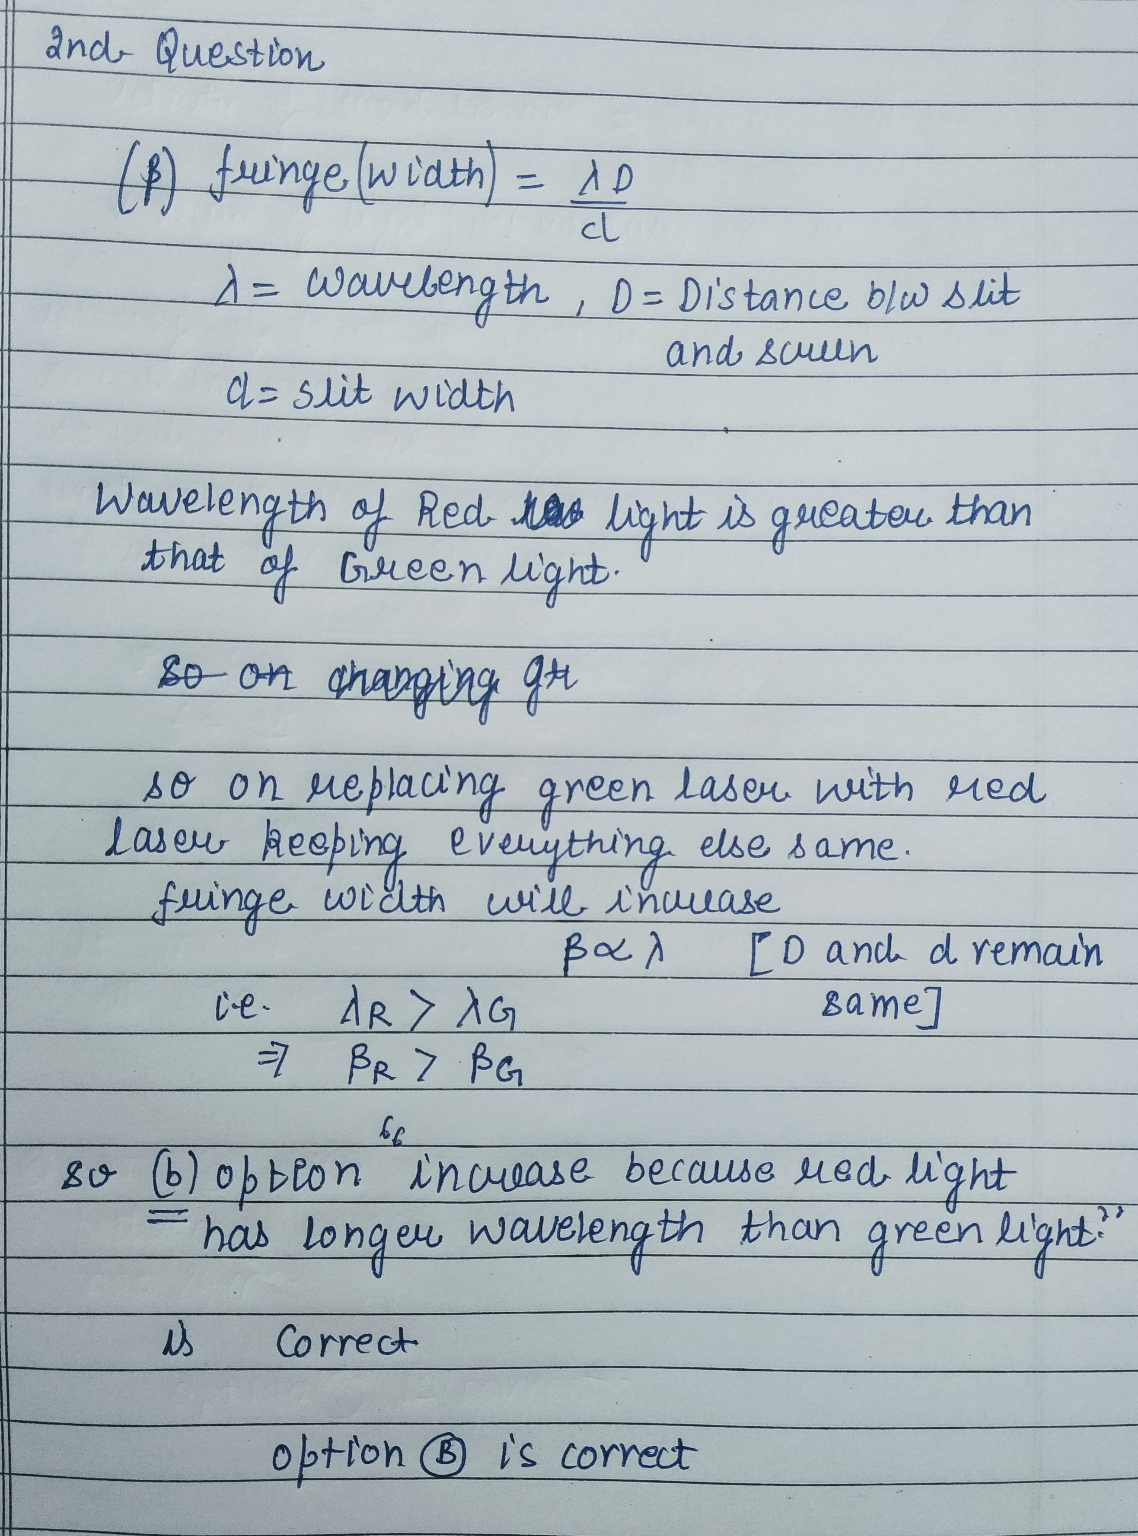 2nd Question
(β) fringe (width) = λD/d
λ = wavelength, D = Distance b/w slit
and screen
d = slit width
Wavelength of Red light is greater than
that of Green light.
so on changing gr
so on replacing green laser with red
laser keeping everything else same.
fringe width will increase
β ∝ λ [D and d remain
same]
i.e. λR > λG
⇒ βR > βG
so (b) option “increase because red light
has longer wavelength than green light.”
is correct
option Ⓑ is correct